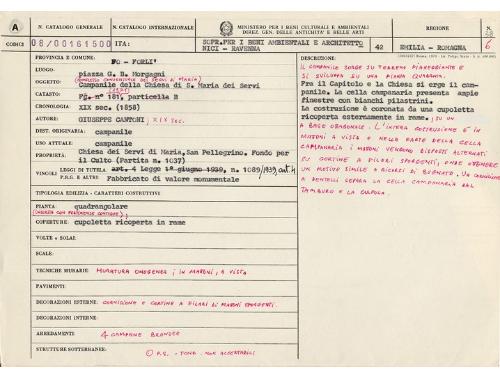 A
N. CATALOGO GENERALE
N. CATALOGO INTERNAZIONALE
MINISTERO PER I BENI CULTURALI E AMBIENTALI
DIREZ. GEN. DELLE ANTICHITÀ E BELLE ARTI
REGIONE
N.
CODICI
08/00161500
ITA:
SOPR.PER I BENI AMBIENTALI E ARCHITETTO
NICI - RAVENNA
42
EMILIA - ROMAGNA
6
PROVINCIA E COMUNE:
FO - FORLI'
LUOGO:
piazza G. B. Morgagni
(COMPLESSO CONVENTUALE DEI SERVI DI MARIA)
OGGETTO:
Campanile della Chiesa di S. Maria dei Servi
CATASTO:
FG. n° 181, particella B
CRONOLOGIA:
XIX sec. (1858)
AUTORE:
GIUSEPPE CANTONI, XIX sec.
DEST. ORIGINARIA:
campanile
USO ATTUALE:
campanile
PROPRIETÀ:
Chiesa dei Servi di Maria, San Pellegrino. Fondo per
il Culto (Partita n. 1037)
VINCOLI
LEGGI DI TUTELA
art. 4 Legge 1° giugno 1939, n. 1089/1939, art. 4
P.R.G. E ALTRI
Fabbricato di valore monumentale
TIPOLOGIA EDILIZIA - CARATTERI COSTRUTTIVI
PIANTA:
quadrangolare
COPERTURE:
cupoletta ricoperta in rame
VOLTE o SOLAI:
SCALE:
TECNICHE MURARIE:
MURATURA OMOGENEA, IN MATTONI, A VISTA
PAVIMENTI:
DECORAZIONI ESTERNE:
CORNICIONE E CORTINE A PILARI DI MATTONI SPORGENTI.
DECORAZIONI INTERNE:
ARREDAMENTI
4 CAMPANE BRONZEE
STRUTTURE SOTTERRANEE:
NON ACCERTABILI
DESCRIZIONE:
IL CAMPANILE SORGE SU TERRENO PIANEGGIANTE E
SI SVILUPPA SU UNA PIANTA QUADRATA.
Fra il Capitolo e la Chiesa si erge il campa-
nile. La cella campanaria presenta ampie
finestre con bianchi pilastrini.
La costruzione è coronata da una cupoletta
ricoperta esternamente in rame, SU UN
A BASE OTTAGONALE. L'INTERA COSTRUZIONE È IN
MATTONI A VISTA E NELLA PARTE DELLA CELLA
CAMPANARIA I MATTONI VENGONO DISPOSTI ALTERNATI
SU CORTINE A PILARI SPORGENTI, ONDE OTTENERE
UN MOTIVO SIMILE A RICAMI DI BUGNATO. UN CORNICIONE
A DENTELLI SEPARA LA CELLA CAMPANARIA DAL
TAMBURO E LA CUPOLA.